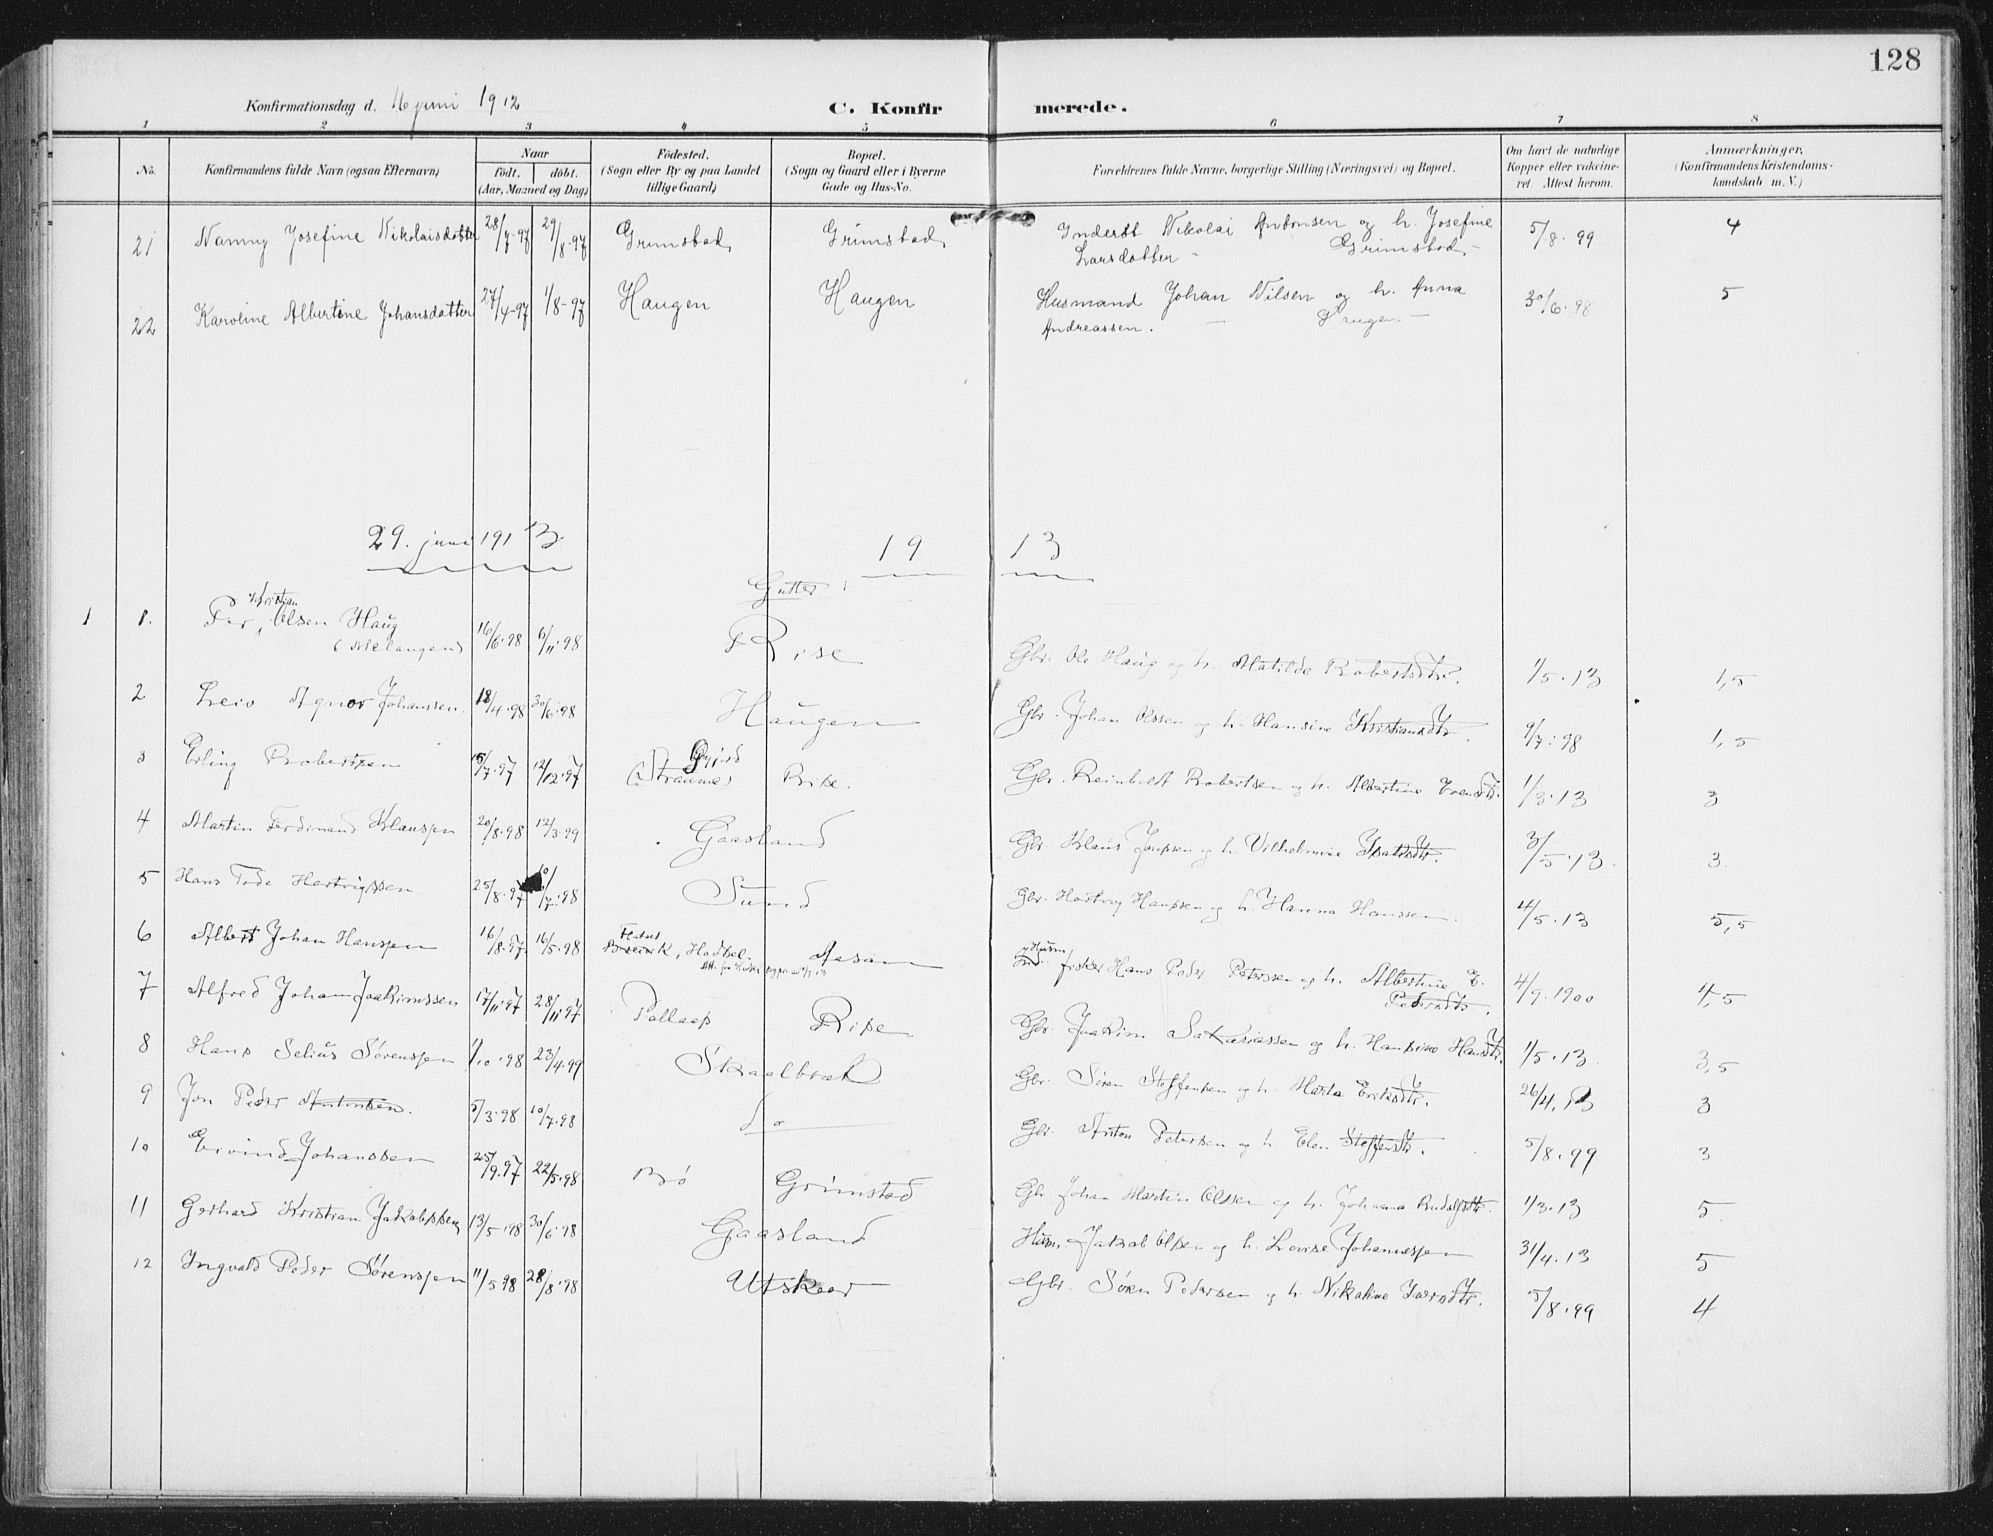 128
Konfirmationsdag d. 16 juni 1912 C. Konfirmerede.
1 2 3 4 5 6 7 8
No. Konfirmandens fulde Navn (ogsaa Efternavn) Naar födt. döbt. (Aar, Maaned og Dag) Födested. (Sogn eller By og paa Landet tillige Gaard) Bopæl. (Sogn og Gaard eller i Byerne Gade og Hus-No. Forældrenes fulde Navne, borgerlige Stilling (Næringsvei) og Bopæl. Om havt de naturlige Kopper eller vakcineret. Attest herom. Anmærkninger. (Konfirmandens Kristendomskundskab m. V.)
21 Nanny Josefine Nikolaisdatter 28/7-97 29/8-97 Grimstad Grimstad Inderst Nikolai Antonsen og h. Josefine 5/8.99 4
Larsdatter - Grimstad -
22 Karoline Albertine Johansdatter 27/4-97 1/8-97 Haugen Haugen Husmand Johan Nilsen og h. Anna 30/6.98 5
Andreassen. - Haugen -
29. juni 1913 19 13
Gutter:
1 1. Per Kristian Olsen Haug 16/6.98 6/11.98 Rise Gbr. Ole Haug og h. Matilde Robertsdtr. 1/5.13 1,5
(Melangen)
2 Leiv Agnor Johanssen 18/4.98 30/6.98 Haugen Gbr. Johan Olssen og h. Hansine Kristiansdtr. 9/7.98 1,5
3 Erling Robertsen 15/7.97 12/12.97 (Straumes) Rise. Gbr. Reinholdt Robertsen og h. Albertine Evensdtr. 1/3.13 3
4 Martin Ferdinand Klaussen 20/8.98 12/3.99 Gaasland Gbr. Klaus Jensen og h. Vilhelmine Isaksdtr. 3/5.13 3.
5 Hans Tode Hertvigssen 25/8.97 10/7.98 Sund Gbr. Hartvig Hanssen og h. Hanna Hanssen. 4/5.13 5,5
6 Albert Johan Hanssen 16/8.97 16/5.98 Breivik, Hadsel. Aasan fisker Hans Peder Peterssen og h. Albertine E. Pedersdtr. 4/9.1900 4,5
7 Alfred Johan Joakimssen 17/11.97 28/11.97 Pollaas Rise Gbr. Joakim Sakariassen og h. Hansine Hansdtr. 1/5.13 3,5
8 Hans Selius Sørenssen 1/10.98 23/4.99 Skaalbrek Gbr. Sören Steffensen og h. Marta Eriksdtr. 26/4.13 3
9 Jon Peder Antonsen. 5/3.98 10/7.98 do Gbr. Anton Petersen og h. Elen Steffensdtr. 5/8.99 3
10 Eivind Johanssen 25/9.97 22/5.98 Bø Grimstad Gbr. Johan Martin Olssen og h. Johanna Rudolfsdtr. 1/3.13 5
11 Gerhard Kristian Jakobssen 13/5.98 30/6.98 Gaasland Husm. Jakob Olsen og h. Lovise Johannessen 31/4.13 5
12 Ingvald Peder Sørenssen 11/5.98 28/8.98 Utskor Gbr. Søren Pedersen og h. Nikoline Iversdtr. 5/8.99 4